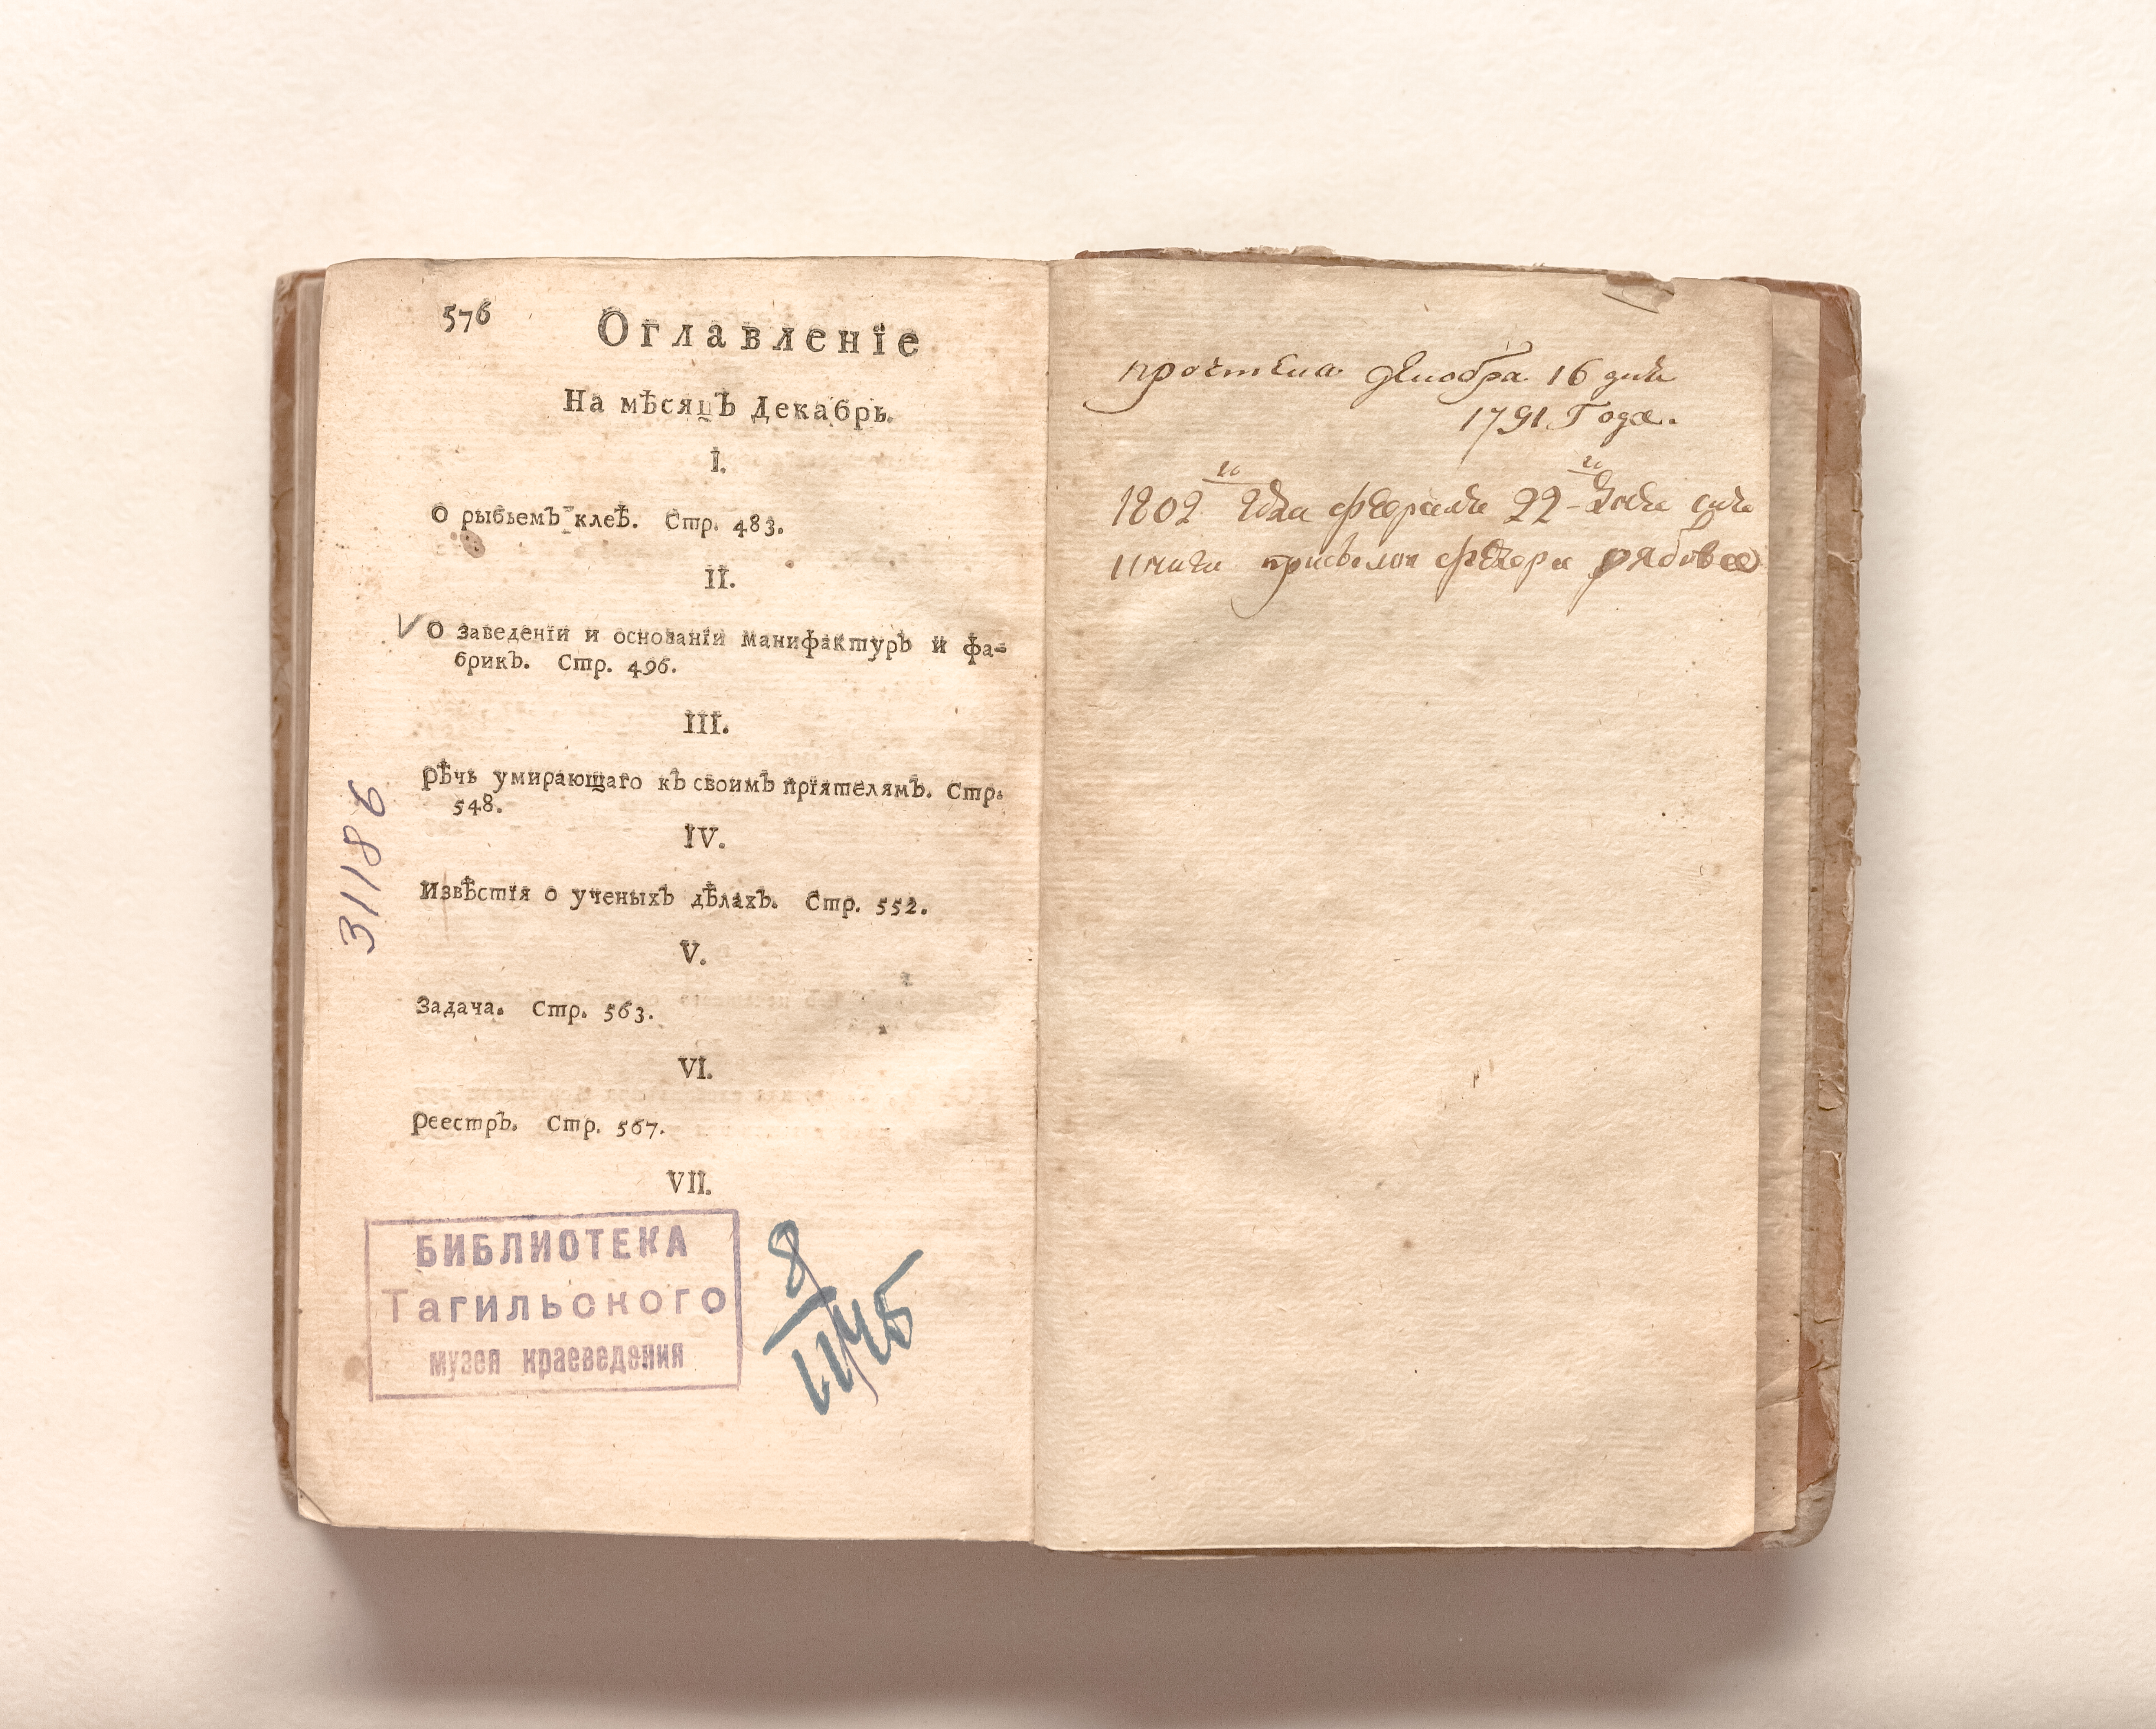 576
Оглавленïе
На мѣсяцъ Декабрь.
I.
О рыбьемъ клеѣ. Стр. 483.
II.
О заведенïи и основанïи манифактуръ и фа-
брикъ. Стр. 496.
III.
Рѣчь умирающаго къ своимъ прïятелямъ. Стр.
548.
IV.
Извѣстïя о ученыхъ дѣлахъ. Стр. 552.
V.
Задача. Стр. 563.
VI.
Реестръ. Стр. 567.
VII.
31186
БИБЛИОТЕКА
Тагильского
музея краеведения
8
1145
прочтена декабра 16 дня
1791 Года.
1802го Года февраля 22-го
рябова